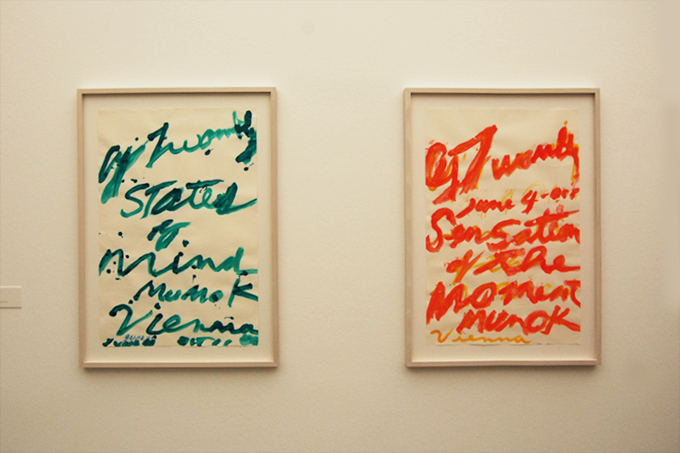 Cy Twombly
States
of
Mind
MUMOK
Vienna
Cy Twombly
June 4 - oct
Sensation
of the
Moment
MUMOK
Vienna